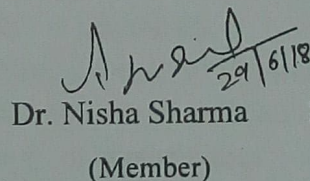 29/6/18
Dr. Nisha Sharma
(Member)